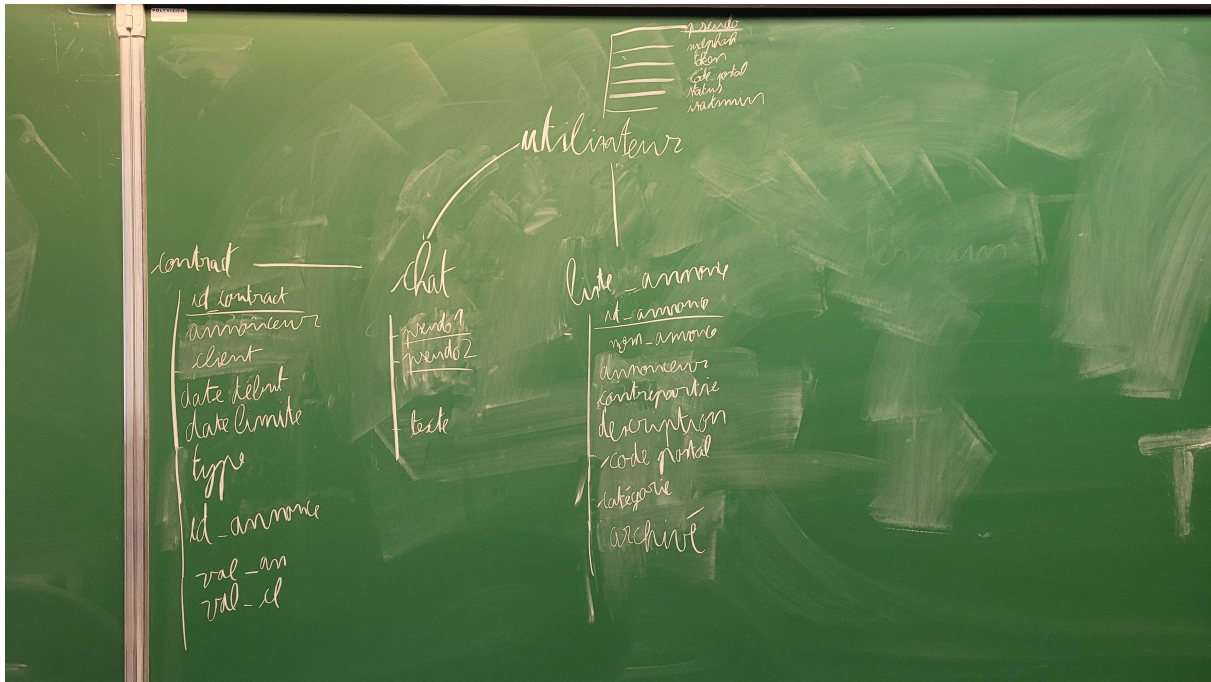 pseudo
mdphash
token
code_postal
status
isadmin
utilisateur
contract
id_contract
annonceur
client
date début
date limite
type
id_annonce
val_an
val_cl
chat
pseudo1
pseudo2
texte
liste_annonce
id_annonce
nom_annonce
annonceur
contrepartie
description
code postal
catégorie
archivé